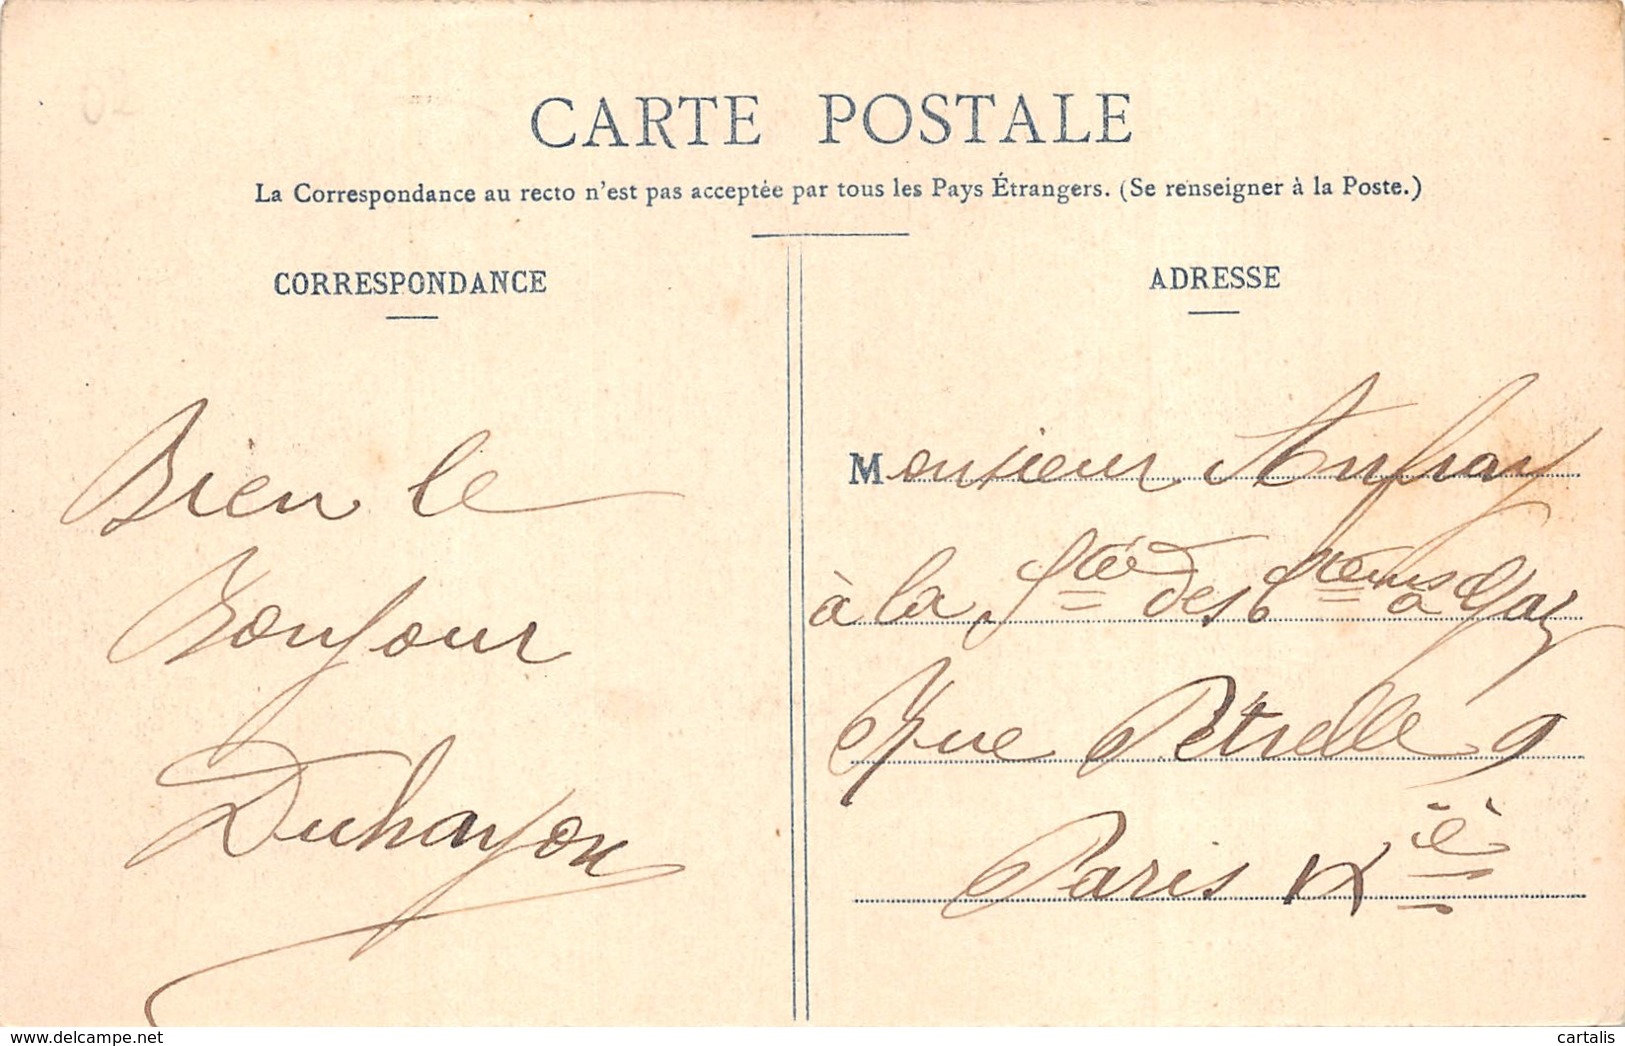 CARTE POSTALE
La Correspondance au recto n'est pas acceptée par tous les Pays Étrangers. (Se renseigner à la Poste.)
CORRESPONDANCE
Bien le
Bonjour
Duhayon
ADRESSE
Monsieur Aufray
à la Sté des Cteurs à Gaz
Rue Pétrelle 9
Paris IXiè
cartalis